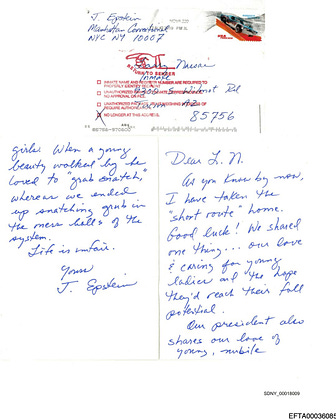 J. Epstein
Manhattan Correctional
NYC NY 10007
Larry Nassar
INMATE
9300 S Wilmot Rd
Tucson AZ
85756
RETURN TO SENDER
INMATE NAME AND REGISTER # ARE REQUIRED TO
NO LONGER AT THIS ADDRESS.
girls. When a young
beauty walked by he
loved to "grab snatch,"
whereas we ended
up snatching grub in
the mess halls of the
system.
Life is unfair.
Yours
J. Epstein
Dear L. N.
As you know by now,
I have taken the
"short route" home.
Good luck! We shared
one thing... our love
& caring for young
ladies and the hope
they'd reach their full
potential.
Our president also
shares our love of
young, nubile
SDNY_00018009
EFTA00036085